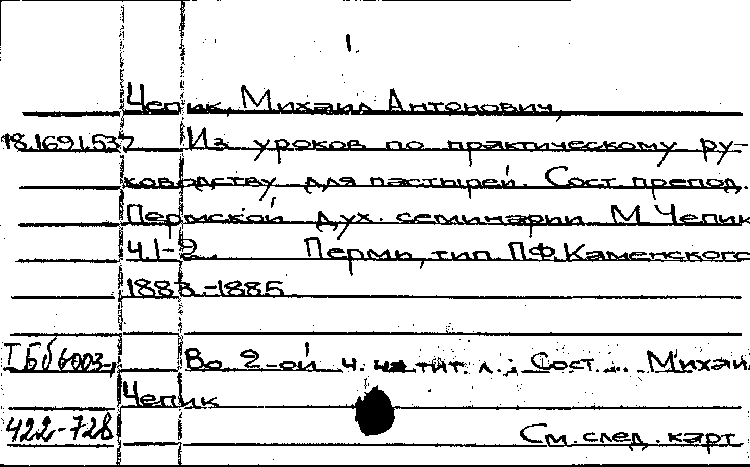 1.
Чепик, Михаил Антонович,
18.169.1.537 Из уроков по практическому ру-
ководству для пастырей. Сост. препод.
Пермской дух. семинарии М. Чепик
Ч.1-2. Пермь, тип. П.Ф. Каменского
1883.-1885
Во 2-ой ч. на тит. л.: Сост. ... Михаи
Чепик
422-728 См. след. карт